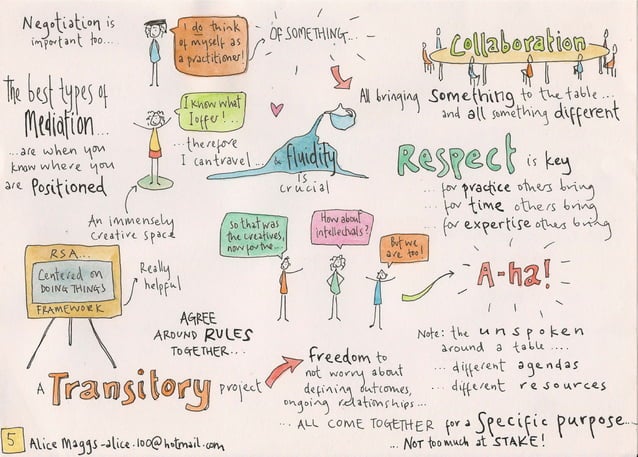 Negotiation is
important too...
I do think
of myself as
a practitioner!
OF SOMETHING...
Collaboration
All bringing something to the table...
and all something different
The best types of
Mediation...
...are when you
know where you
are Positioned
I know what
I offer!
...therefore
I can travel...
& fluidity
is
crucial
Respect is key
... for practice others bring
... for time others bring
... for expertise others bring
An immensely
creative space
So that was
the creatives,
now for the...
How about
intellectuals?
But we
are too!
A-ha!
RSA...
Centered on
DOING THINGS
FRAMEWORK
Really
helpful
AGREE
AROUND RULES
TOGETHER...
Note: the unspoken
around a table ....
... different agendas
... different resources
A Transitory project
freedom to
not worry about
defining outcomes,
ongoing relationships...
... ALL COME TOGETHER for a specific purpose...
... Not too much at STAKE!
5
Alice Maggs - alice.100@hotmail.com